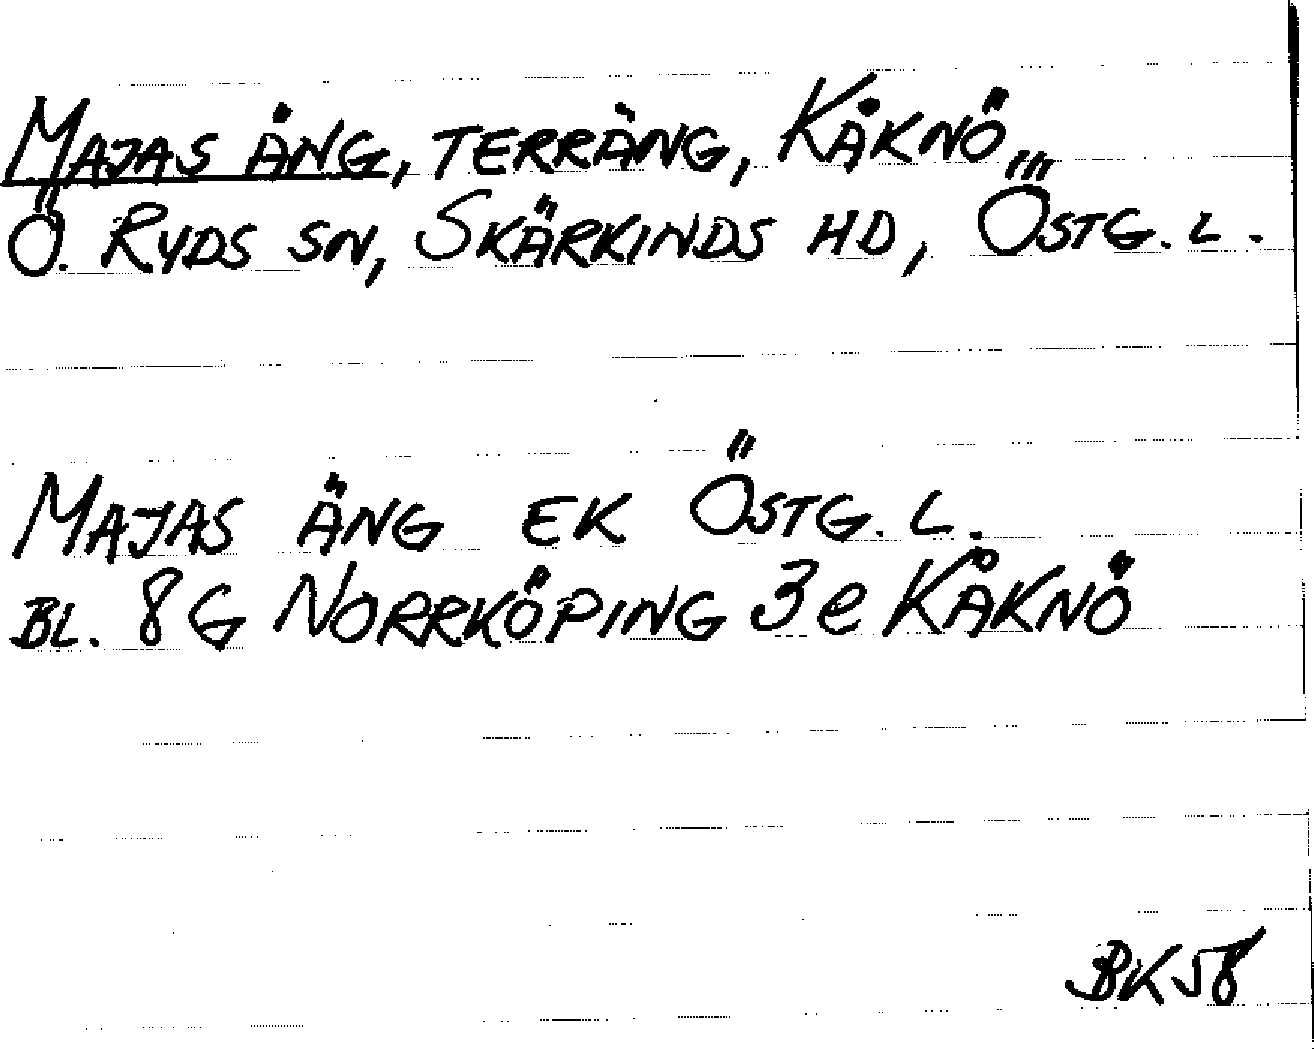 MAJAS ÄNG, TERRÄNG, KÅKNÖ,
Ö. RYDS SN, SKÄRKINDS HD, ÖSTG. L.
MAJAS ÄNG EK ÖSTG. L.
BL. 8G NORRKÖPING 3e KÅKNÖ
BK58